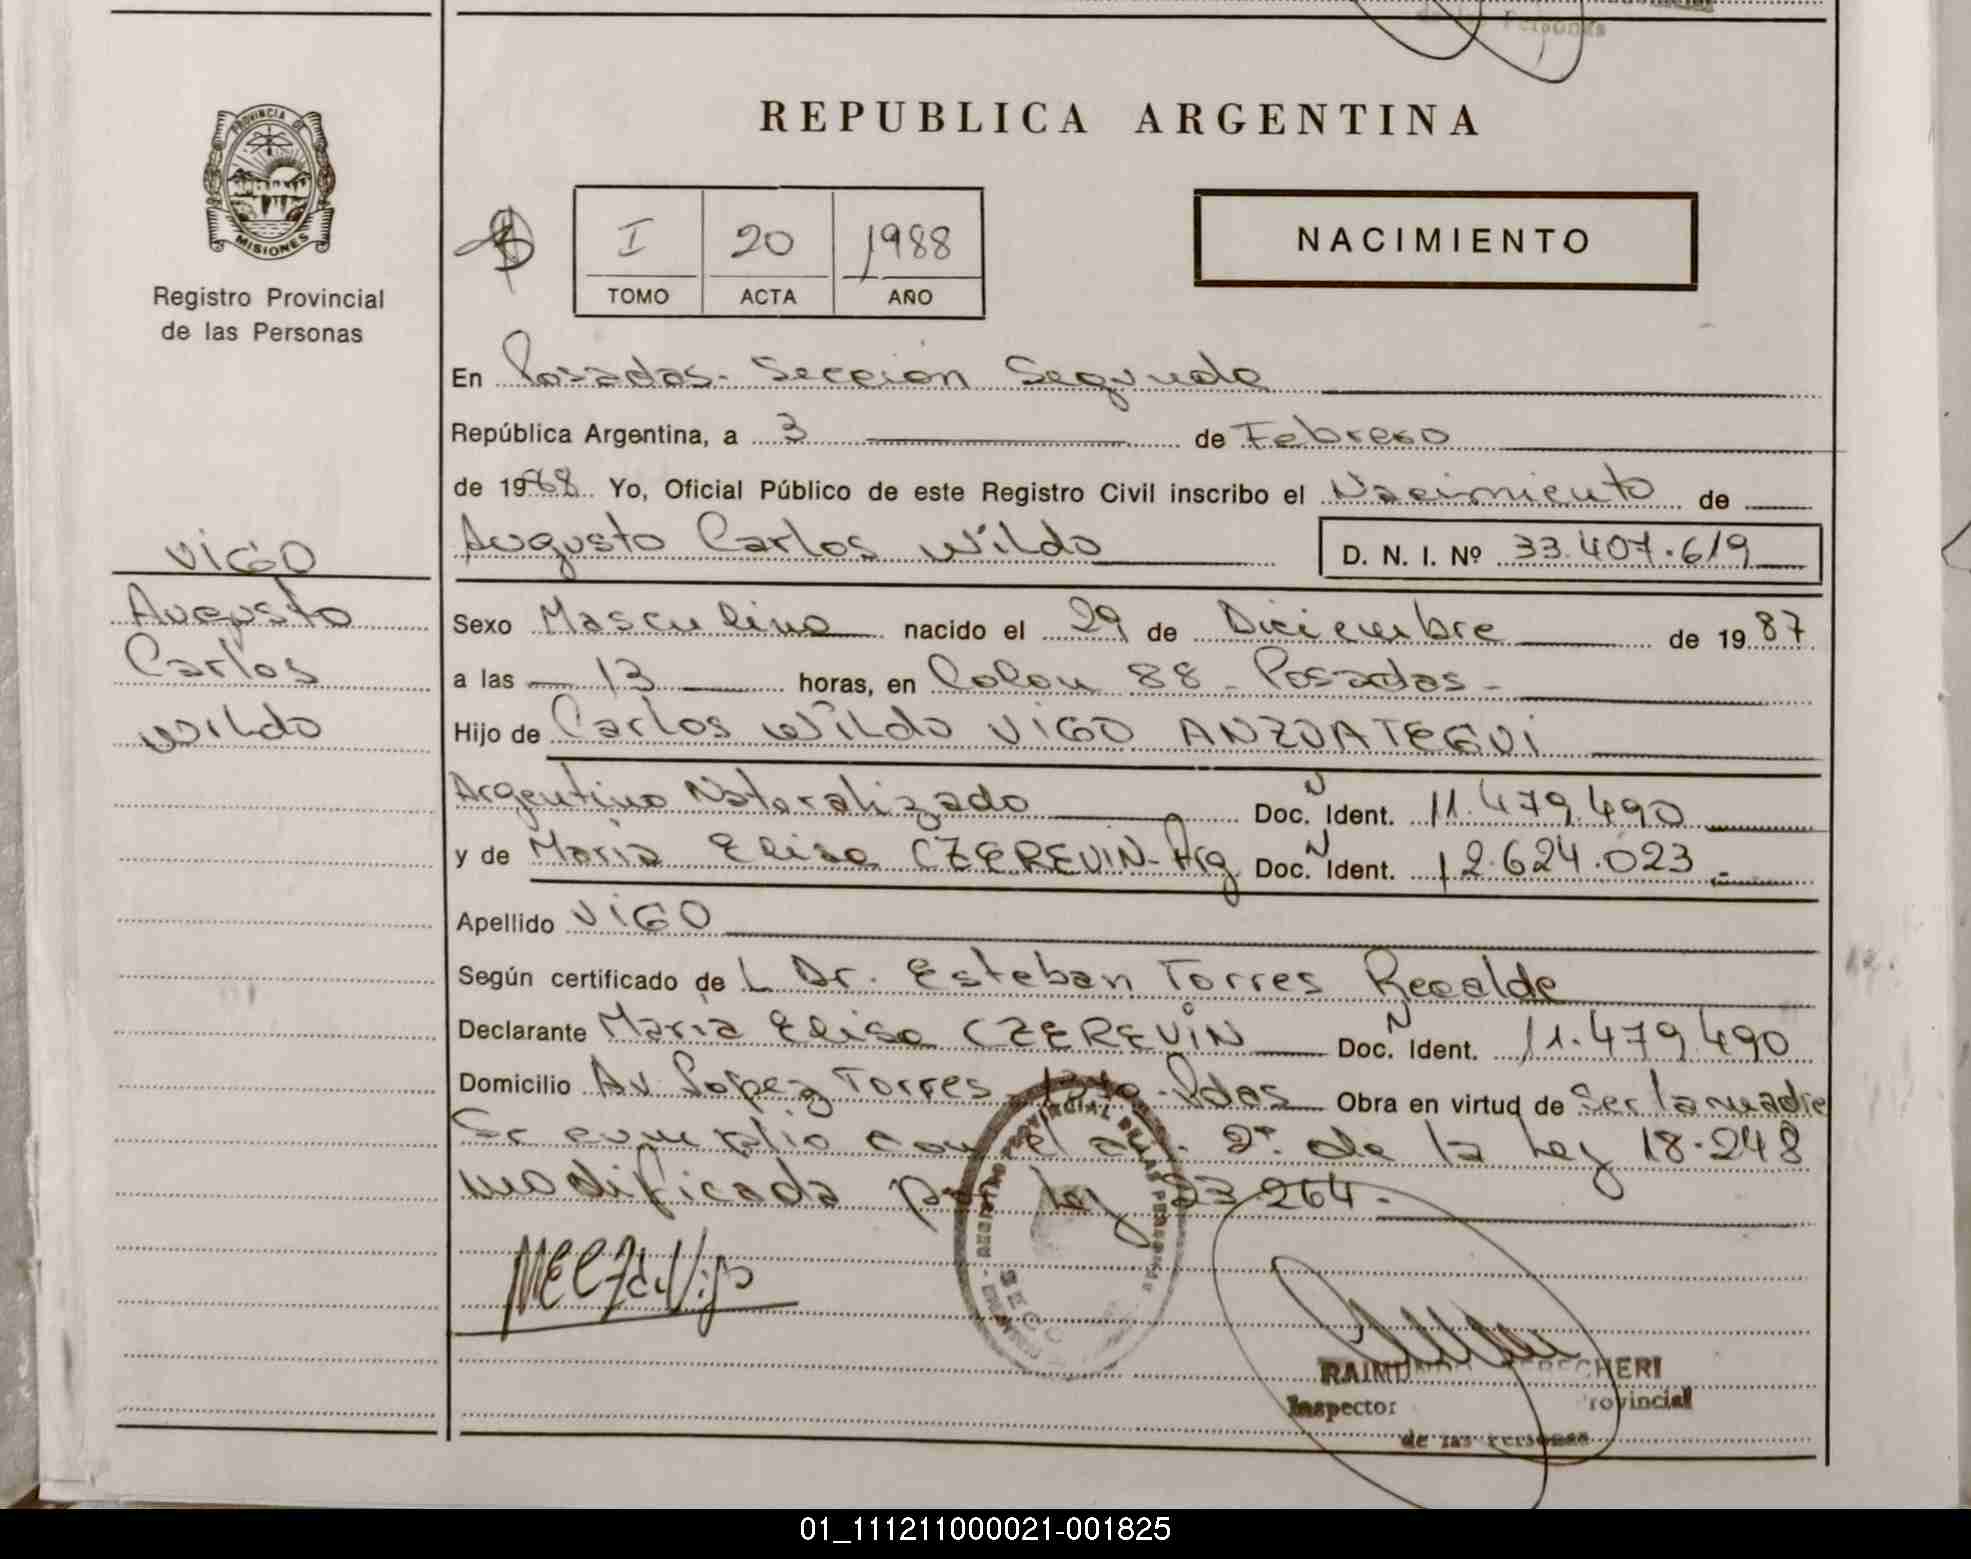 de las Personas
PROVINCIA DE
MISIONES
Registro Provincial
de las Personas
REPUBLICA ARGENTINA
I 20 1988
TOMO ACTA AÑO
NACIMIENTO
En Posadas - Sección Segunda
República Argentina, a 3 de Febrero
de 1988 Yo, Oficial Público de este Registro Civil inscribo el Nacimiento de
Augusto Carlos Wildo D. N. I. Nº 33.407.619
VIGO
Augusto
Carlos
Wildo
Sexo Masculino nacido el 29 de Diciembre de 1987
a las 13 horas, en Colon 88 - Posadas -
Hijo de Carlos Wildo VIGO ANZUATEGUI
Argentino Naturalizado Doc. N Ident. 11.479.490
y de Maria Elisa CZEREVIN - Arg Doc. N Ident. 12.624.023
Apellido VIGO
Según certificado de L Dr. Esteban Torres Recalde
Declarante Maria Elisa CZEREVIN Doc. N Ident. 11.479.490
Domicilio Av. Lopez Torres - Pdas Obra en virtud de Ser la madre
Se cumplio con el art. 2º de la Ley 18.248
modificada por ley 23.264.
RAIMUNDO CHERI
Inspector Provincial
de las Personas
01_111211000021-001825